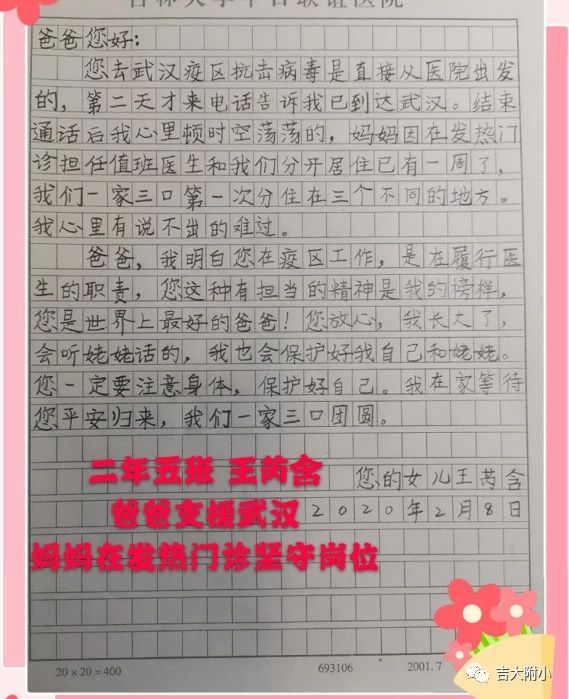 吉林大学中日联谊医院
爸爸您好:
您去武汉疫区抗击病毒是直接从医院出发
的，第二天才来电话告诉我已到达武汉。结束
通话后我心里顿时空荡荡的，妈妈因在发热门
诊担任值班医生和我们分开居住已有一周了，
我们一家三口第一次分住在三个不同的地方。
我心里有说不出的难过。
爸爸，我明白您在疫区工作，是在履行医
生的职责，您这种有担当的精神是我的榜样，
您是世界上最好的爸爸！您放心，我长大了，
会听姥姥话的，我也会保护好我自己和姥姥。
您一定要注意身体，保护好自己。我在家等待
您平安归来，我们一家三口团圆。
您的女儿王芮含
2020年2月8日
二年五班 王芮含
爸爸支援武汉
妈妈在发热门诊坚守岗位
20×20=400 693106 2001.7
吉大附小